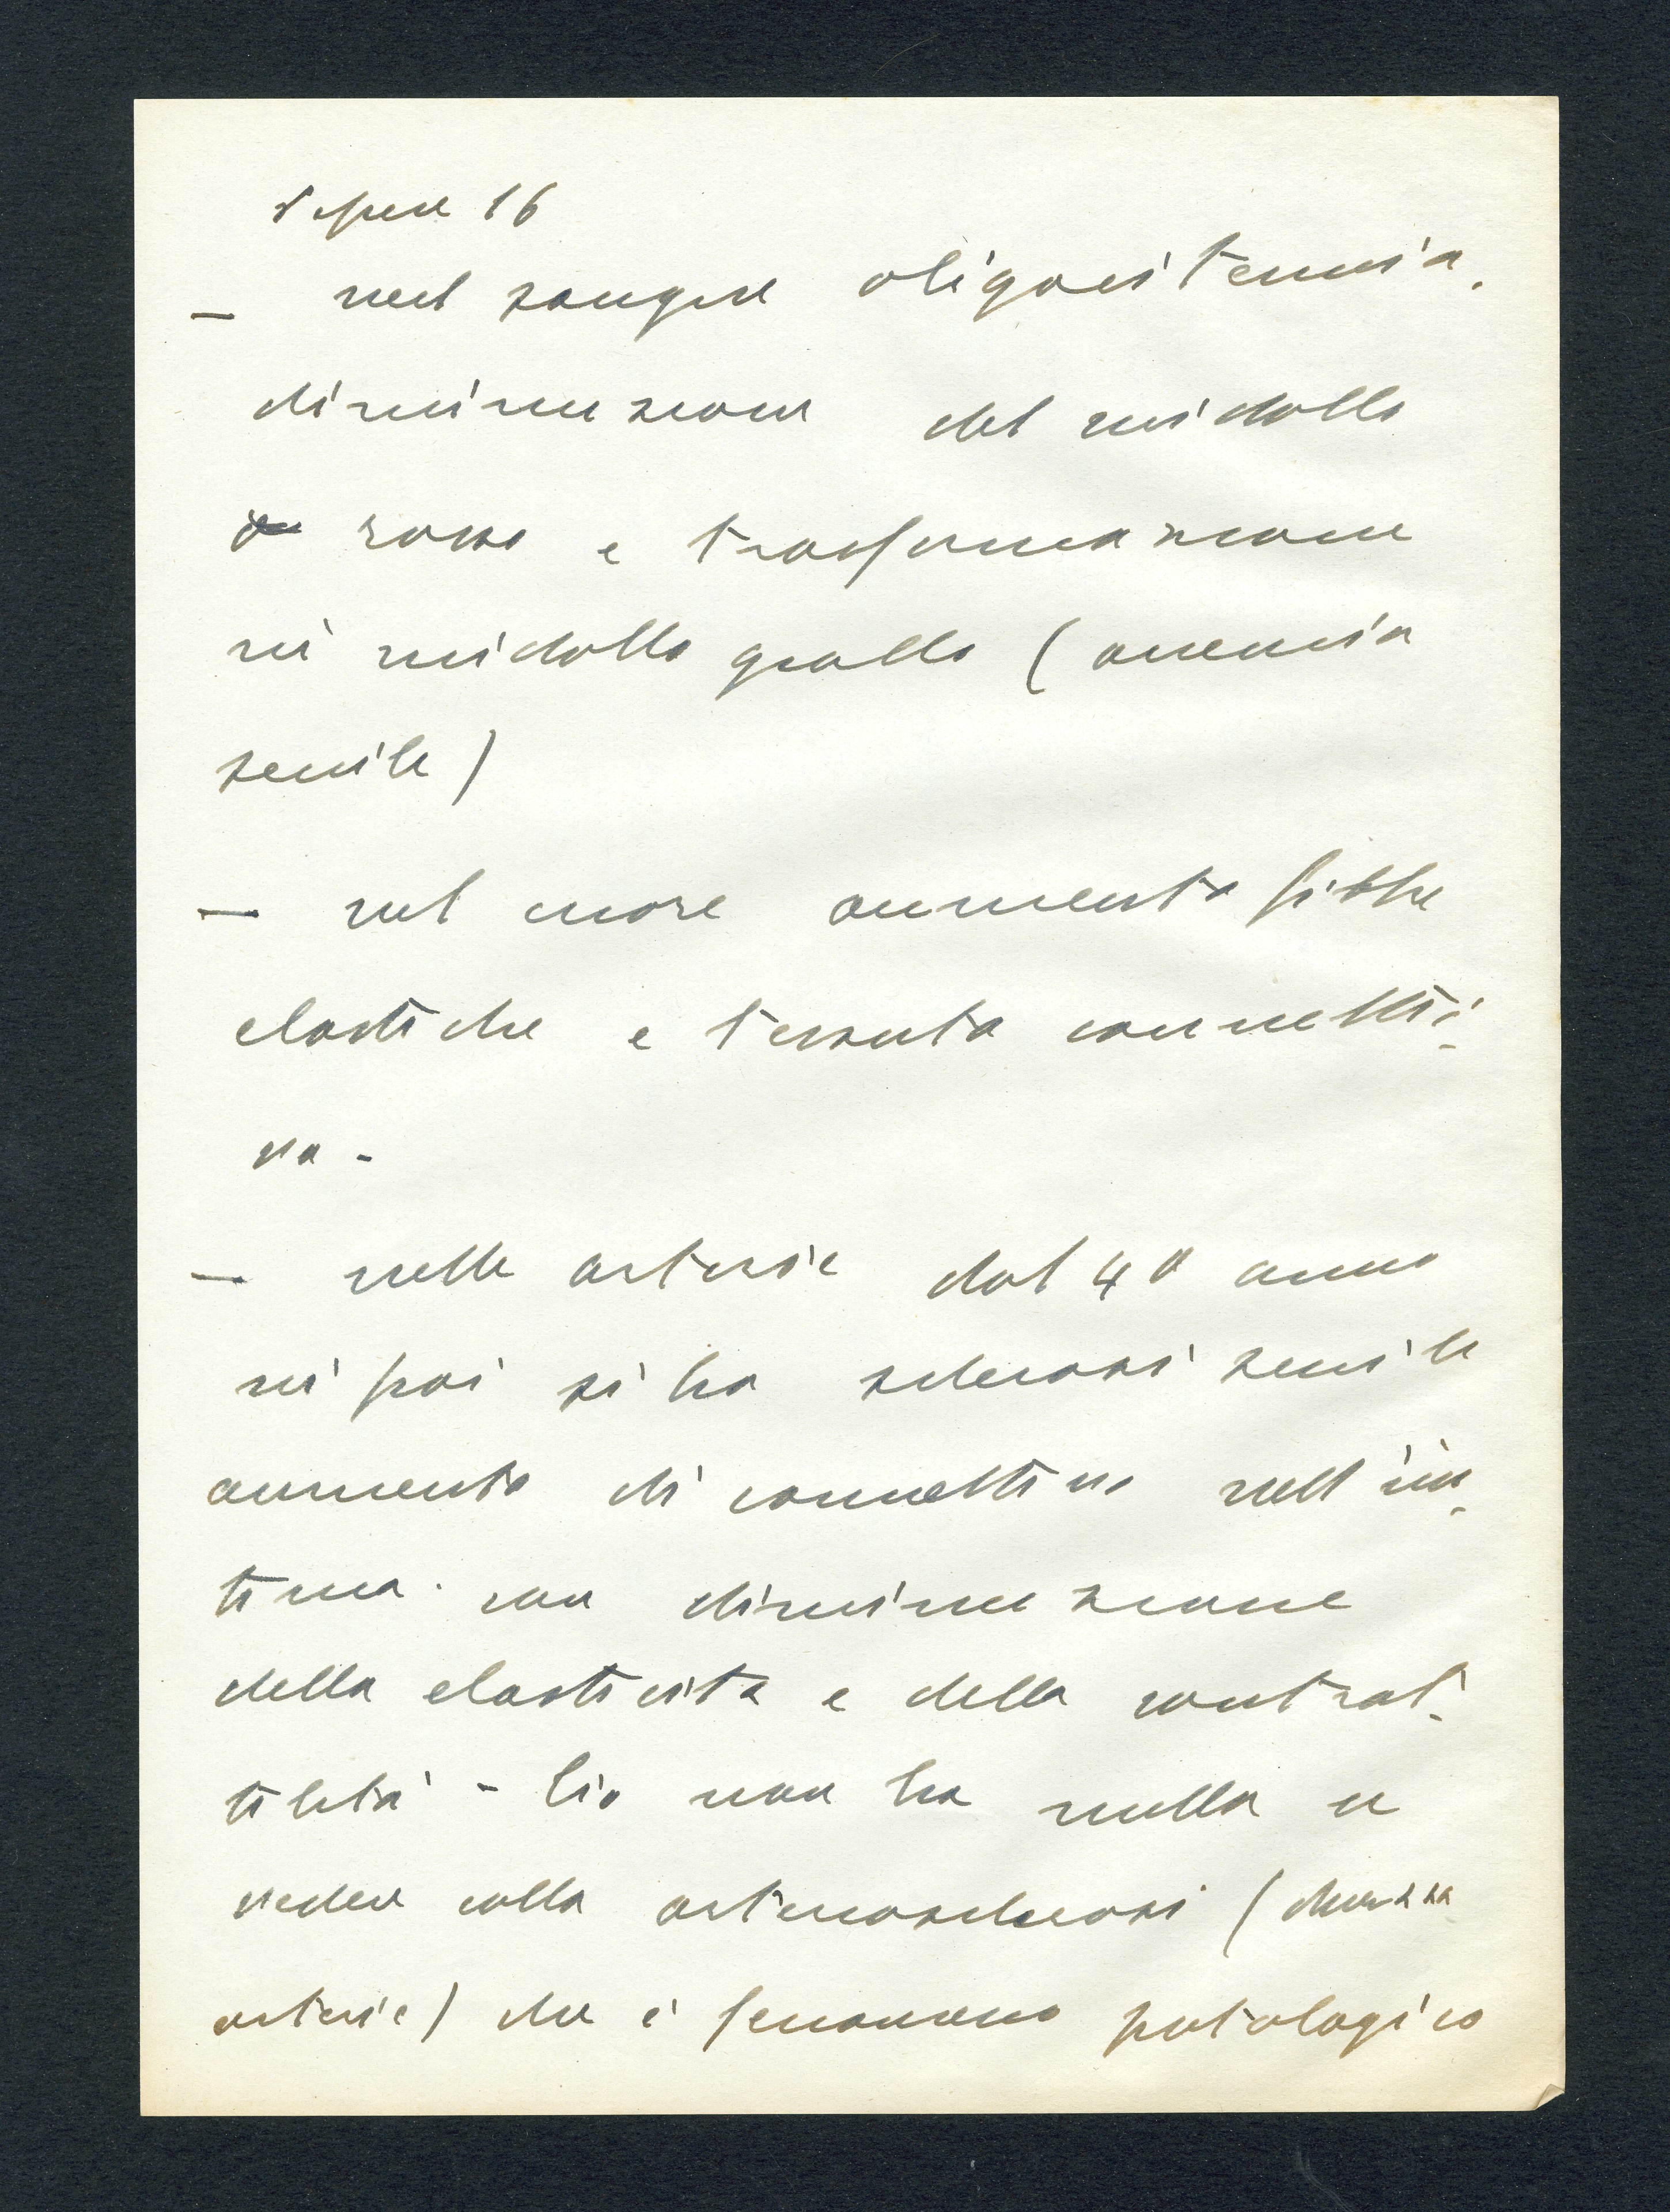 Segue 16
- nel sangue oligocitemia,
diminuzione del midollo
rosso e trasformazione
in midollo giallo (anemia
senile)
- nel cuore aumento fibre
elastiche e tessuto connetti-
vo -
- nelle arterie dal 40 anno
in poi si ha sclerosi senile
aumento di connettivo nell'in-
tima con diminuzione
della elasticità e della contrat-
tilità - Ciò non ha nulla a
vedere colla arteriosclerosi (durezza
arterie) che è fenomeno patologico